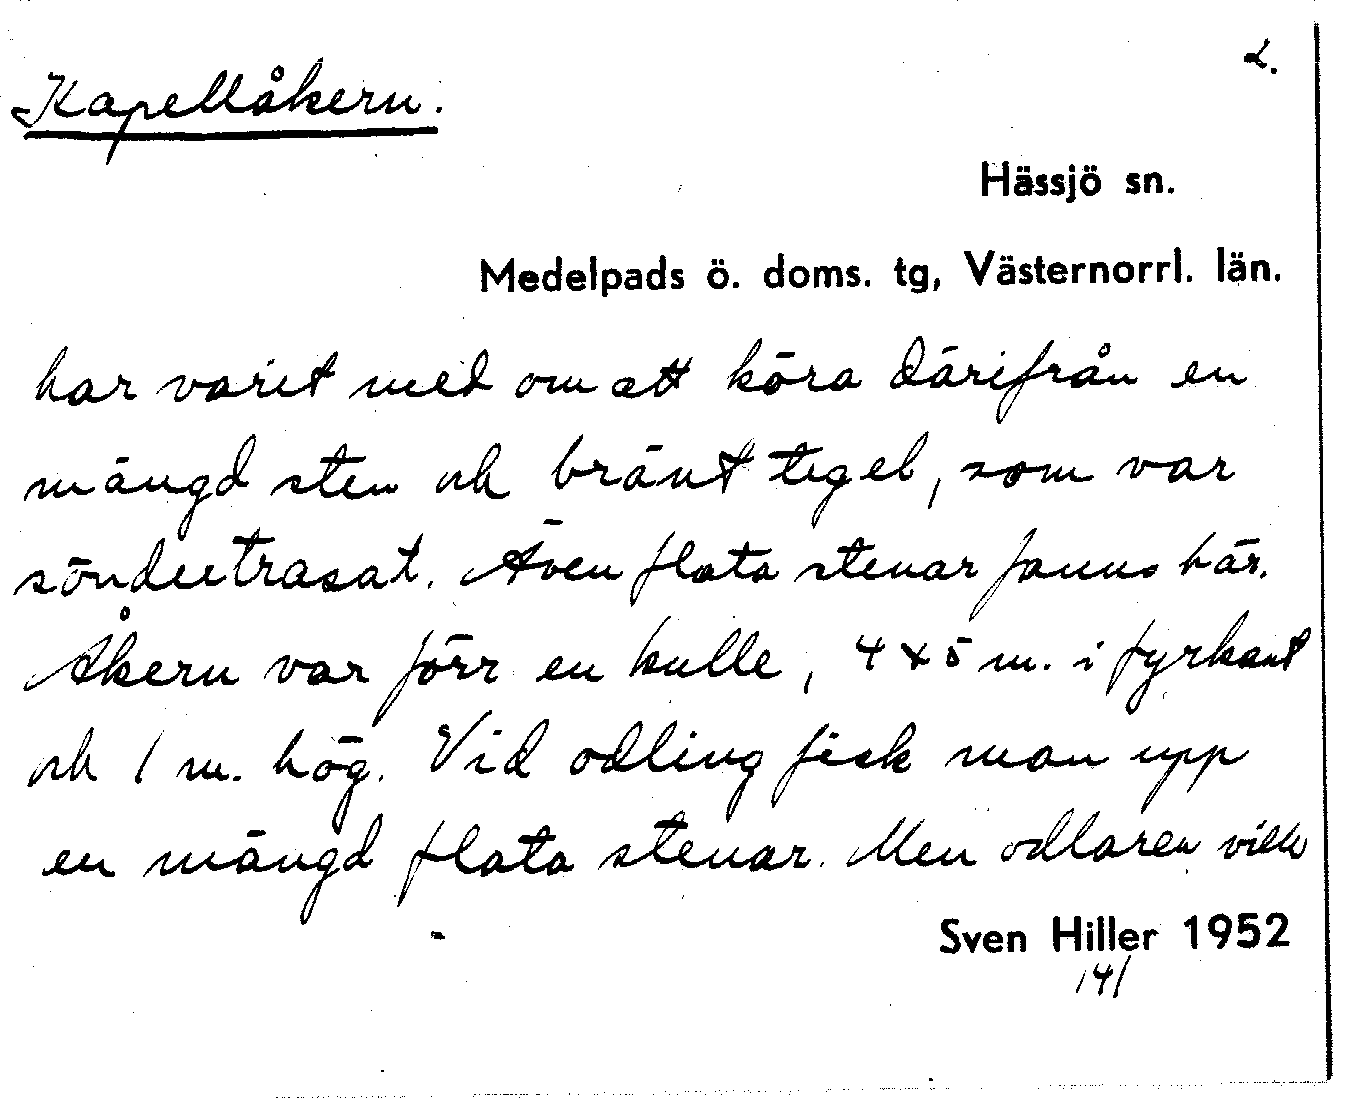 2.
Kapellåkern.
Hässjö sn.
Medelpads ö. doms. tg, Västernorrl. län.
har varit med om att köra därifrån en
mängd sten och bränt tegel, som var
söndertrasat. Även flata stenar fanns här.
Åkern var förr en kulle, 4 x 5 m. i fyrkant
och 1 m. hög. Vid odling fick man upp
en mängd flata stenar. Men odlaren ville
Sven Hiller 1952
141